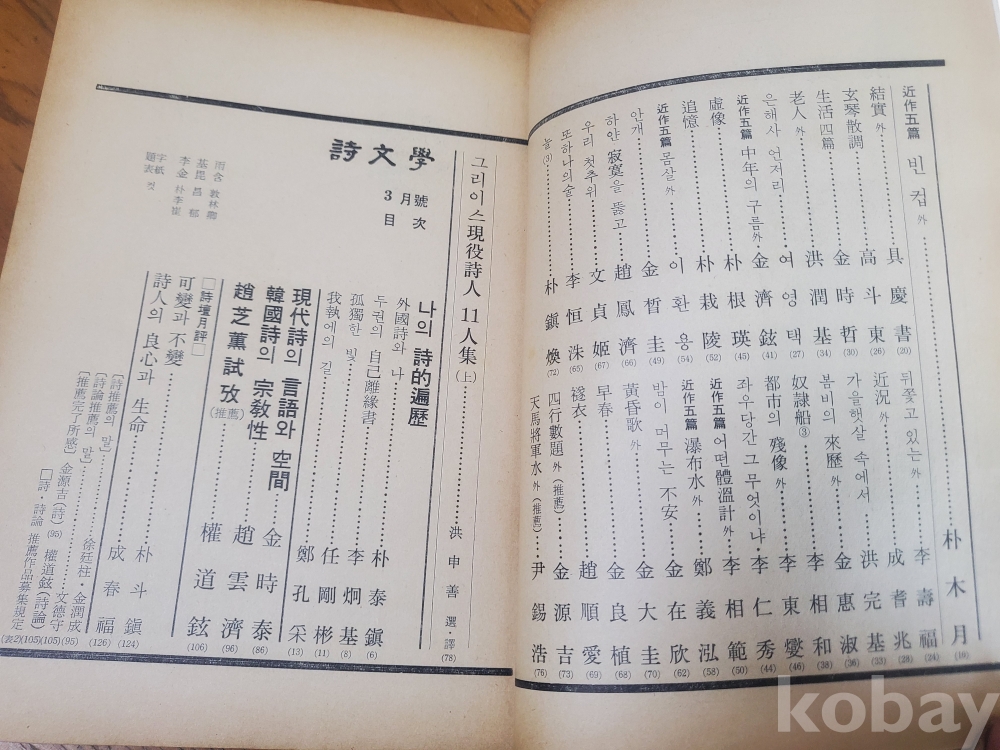 近作五篇 빈 컵 外 朴木月 (10)
結實 外 具慶書 (20)
玄琴散調 高斗東 (26)
生活四篇 金時哲 (30)
老人 外 洪潤基 (34)
은해사 언저리 여영택 (27)
近作五篇 中年의 구름 外 金濟鉉 (41)
虛像 朴根瑛 (45)
追憶 朴栽陵 (52)
近作五篇 몸살 外 이환용 (54)
안개 金晳圭 (49)
하얀 寂寞을 뚫고 趙鳳濟
우리 첫추위 文貞姬
또하나의 술 李恒洙
늪(3) 朴鎭煥 (72)
뒤쫓고 있는 外 李壽福 (24)
近況 外 成耆兆 (28)
가을햇살 속에서 洪完基 (33)
봄비의 來歷 金惠淑 (36)
奴隷船③ 李相和 (38)
都市의 殘像 外 李東燮 (46)
좌우당간 그 무엇이냐 李仁秀 (44)
近作五篇 어떤 體溫計 外 李相範 (50)
近作五篇 瀑布水 外 鄭義泓 (58)
밤이 머무는 不安 金在欣 (62)
黃昏歌 外 金大圭 (70)
早春 金良植 (68)
襚衣 趙順愛 (69)
四行數題 外 (推薦) 金源吉 (73)
天馬將軍水 外 (推薦) 尹錫浩 (76)
그리이스現役詩人 11人集 (上) 洪申善 選·譯 (78)
詩文學
3月號
目次
나의 詩的遍歷
外國詩와 나 朴泰鎭 (6)
두권의 自己離緣書 李炯基 (8)
孤獨한 빛 任剛彬 (11)
我執에의 길 鄭孔采 (13)
現代詩의 言語와 空間 金時泰 (86)
韓國詩의 宗敎性 趙雲濟 (96)
趙芝薰試攷 (推薦) 權道鉉 (106)
□詩壇月評□
可變과 不變 朴斗鎭 (124)
詩人의 良心과 生命 成春福 (126)
〔詩推薦의 말〕 徐廷柱·金潤成 (95)
〔詩論推薦의 말〕 文德守 (105)
〔推薦完了所感〕 金源吉(詩) (95) 權道鉉(詩論) (105)
□詩·詩論 推薦作品募集規定 (表2)
kobay